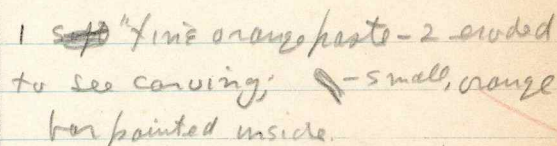 1 "fine orange paste - 2 eroded
to see carving; - small, orange
bar painted inside.